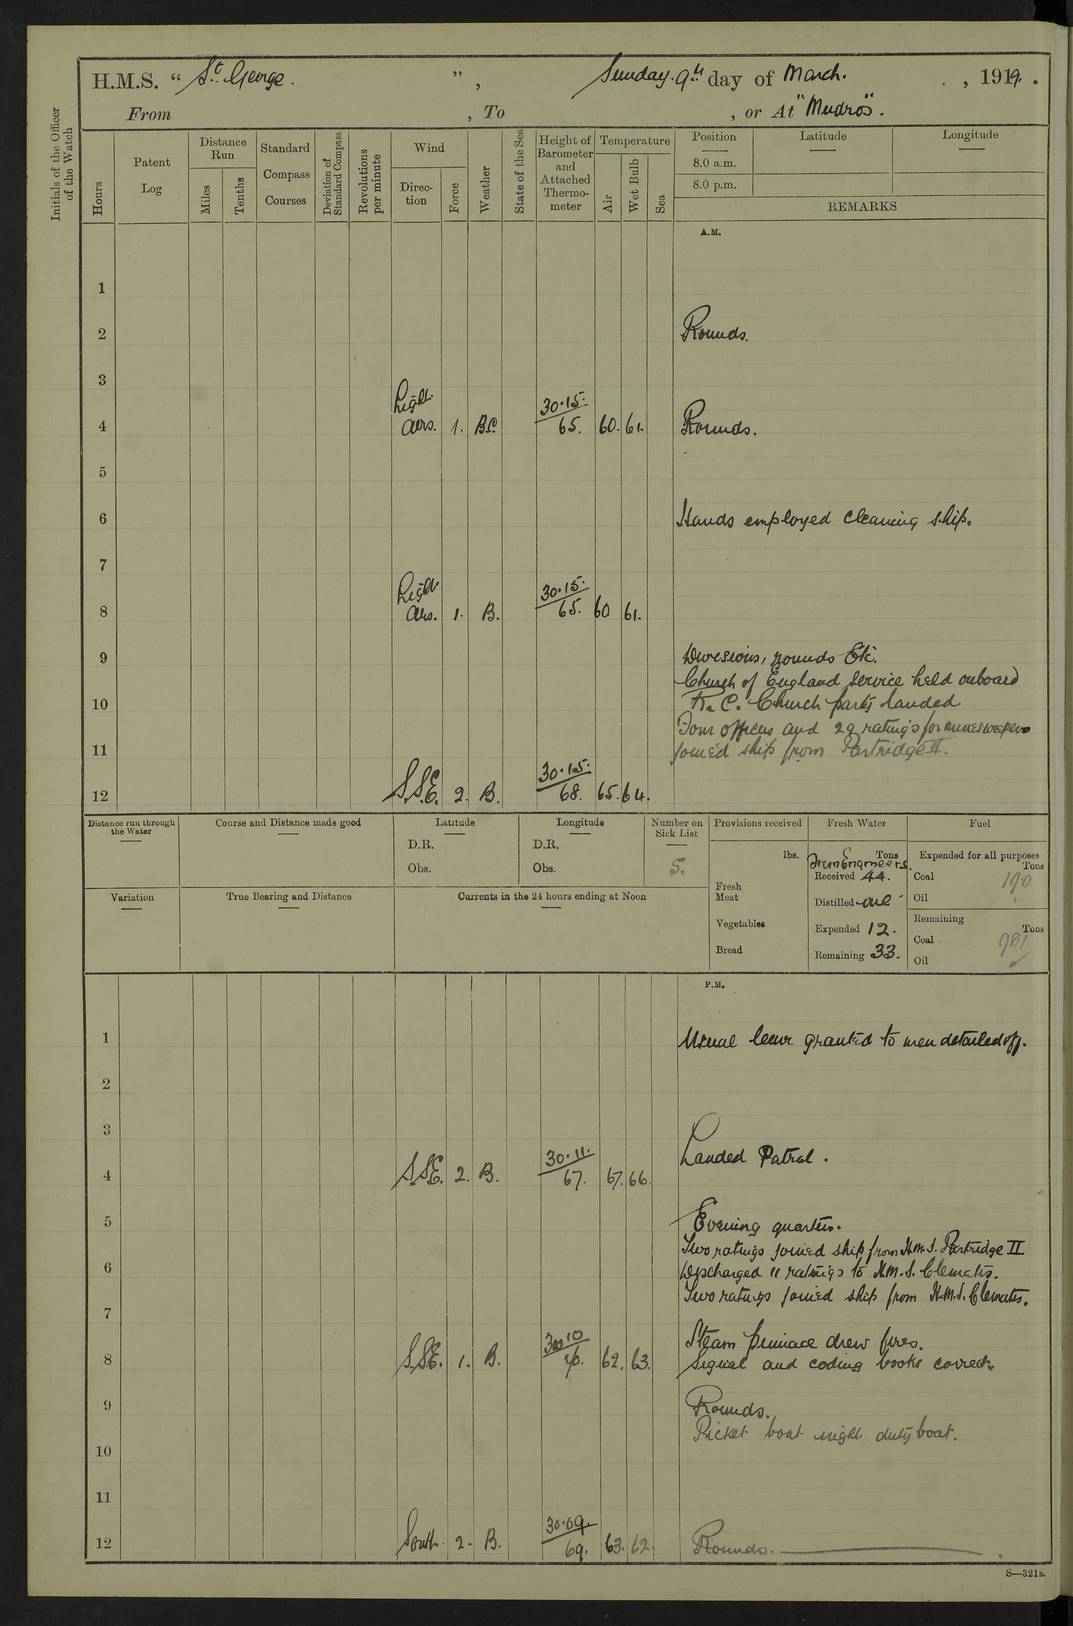 H.M.S. “ St. George. ” , Sunday. 9th day of March. , 1919 .
From , To , or At "Mudros".
Initials of the Officer of the Watch
Hours
Patent Log
Distance Run
Miles
Tenths
Standard Compass Courses
Deviation of Standard Compass
Revolutions per minute
Wind
Direction
Force
Weather
State of the Sea
Height of Barometer and Attached Thermometer
Temperature
Air
Wet Bulb
Sea
Position Latitude Longitude
8.0 a.m.
8.0 p.m.
REMARKS
A.M.
1
2 Rounds.
3
4 Light airs. 1. B.C. 30.15. 65. 60. 61. Rounds.
5
6 Hands employed cleaning ship.
7
8 Light airs. 1. B. 30.15. 65. 60 61.
9 Divisions, rounds Etc.
Church of England Service held onboard
10 R. C. Church party landed
Four officers and 29 ratings for minesweepers
11 joined ship from Partridge II.
12 S.S.E. 2. B. 30.15. 68. 65. 64.
Distance run through the Water
Course and Distance made good
Latitude
D.R.
Obs.
Longitude
D.R.
Obs.
Number on Sick List
5.
Provisions received
lbs.
Fresh Meat
Vegetables
Bread
Fresh Water
Tons
From Engineers.
Received 44.
Distilled nil
Expended 12.
Remaining 33.
Fuel
Expended for all purposes
Tons
Coal 190
Oil
Remaining
Tons
Coal 981
Oil
Variation
True Bearing and Distance
Currents in the 24 hours ending at Noon
P.M.
1 Usual leave granted to men detailed off.
2
3
4 S.S.E. 2. B. 30.11. 67. 67. 66. Landed Patrol.
5 Evening quarters.
Two ratings joined ship from H.M.S. Partridge II
6 Discharged 11 ratings to H.M.S. Clematis.
Two ratings joined ship from H.M.S. Clematis.
7
Steam pinnace drew fires.
8 S.S.E. 1. B. 30.10 62. 63. Signal and coding books correct.
9 Rounds.
Picket boat night duty boat.
10
11
12 South. 2. B. 30.09. 69. 63. 62. Rounds.
S—321B.